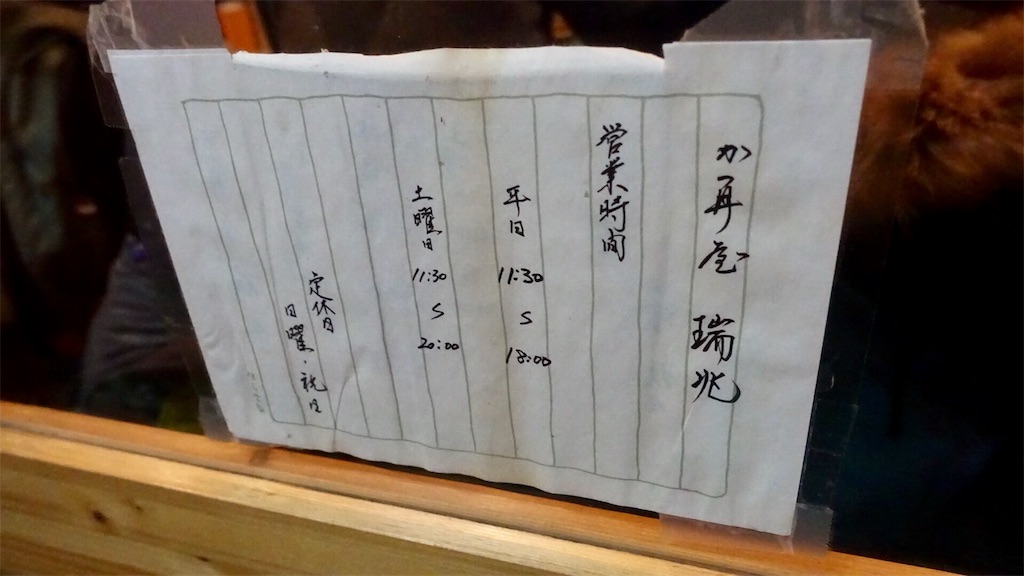 か丼屋 瑞兆
営業時間
平日 11:30 〜 18:00
土曜日 11:30 〜 20:00
定休日
日曜・祝日